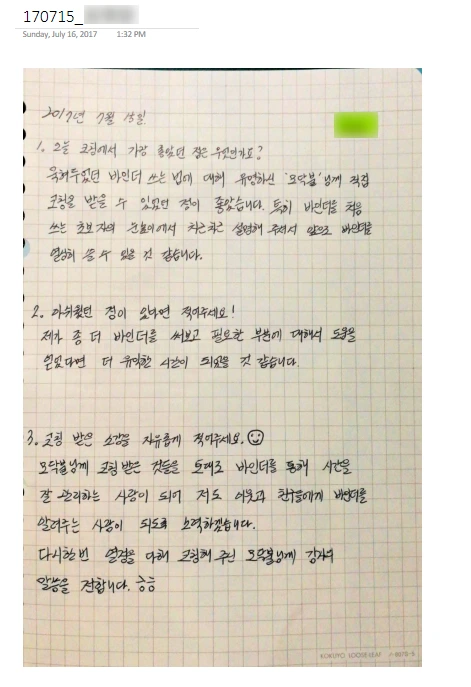 170715_
Sunday, July 16, 2017 1:32 PM
2017년 7월 15일.
1. 오늘 코칭에서 가장 좋았던 점은 무엇인가요?
묵혀두었던 바인더 쓰는 법에 대해 유명하신 '모닥불'님께 직접
코칭을 받을 수 있었던 점이 좋았습니다. 특히 바인더를 처음
쓰는 초보자의 눈높이에서 차근차근 설명해 주셔서 앞으로 바인더를
열심히 쓸 수 있을 것 같습니다.
2. 아쉬웠던 점이 있다면 적어주세요!
제가 좀 더 바인더를 써보고 필요한 부분에 대해서 도움을
얻었다면 더 유익한 시간이 되었을 것 같습니다.
3. 코칭 받은 소감을 자유롭게 적어주세요.
모닥불님께 코칭 받은 것들을 토대로 바인더를 통해 시간을
잘 관리하는 사람이 되어 저도 이웃과 친구들에게 바인더를
알려주는 사람이 되도록 노력하겠습니다.
다시한번 열정을 다해 코칭해 주신 모닥불님께 감사의
말씀을 전합니다. ㅎㅎ
KOKUYO LOOSE-LEAF